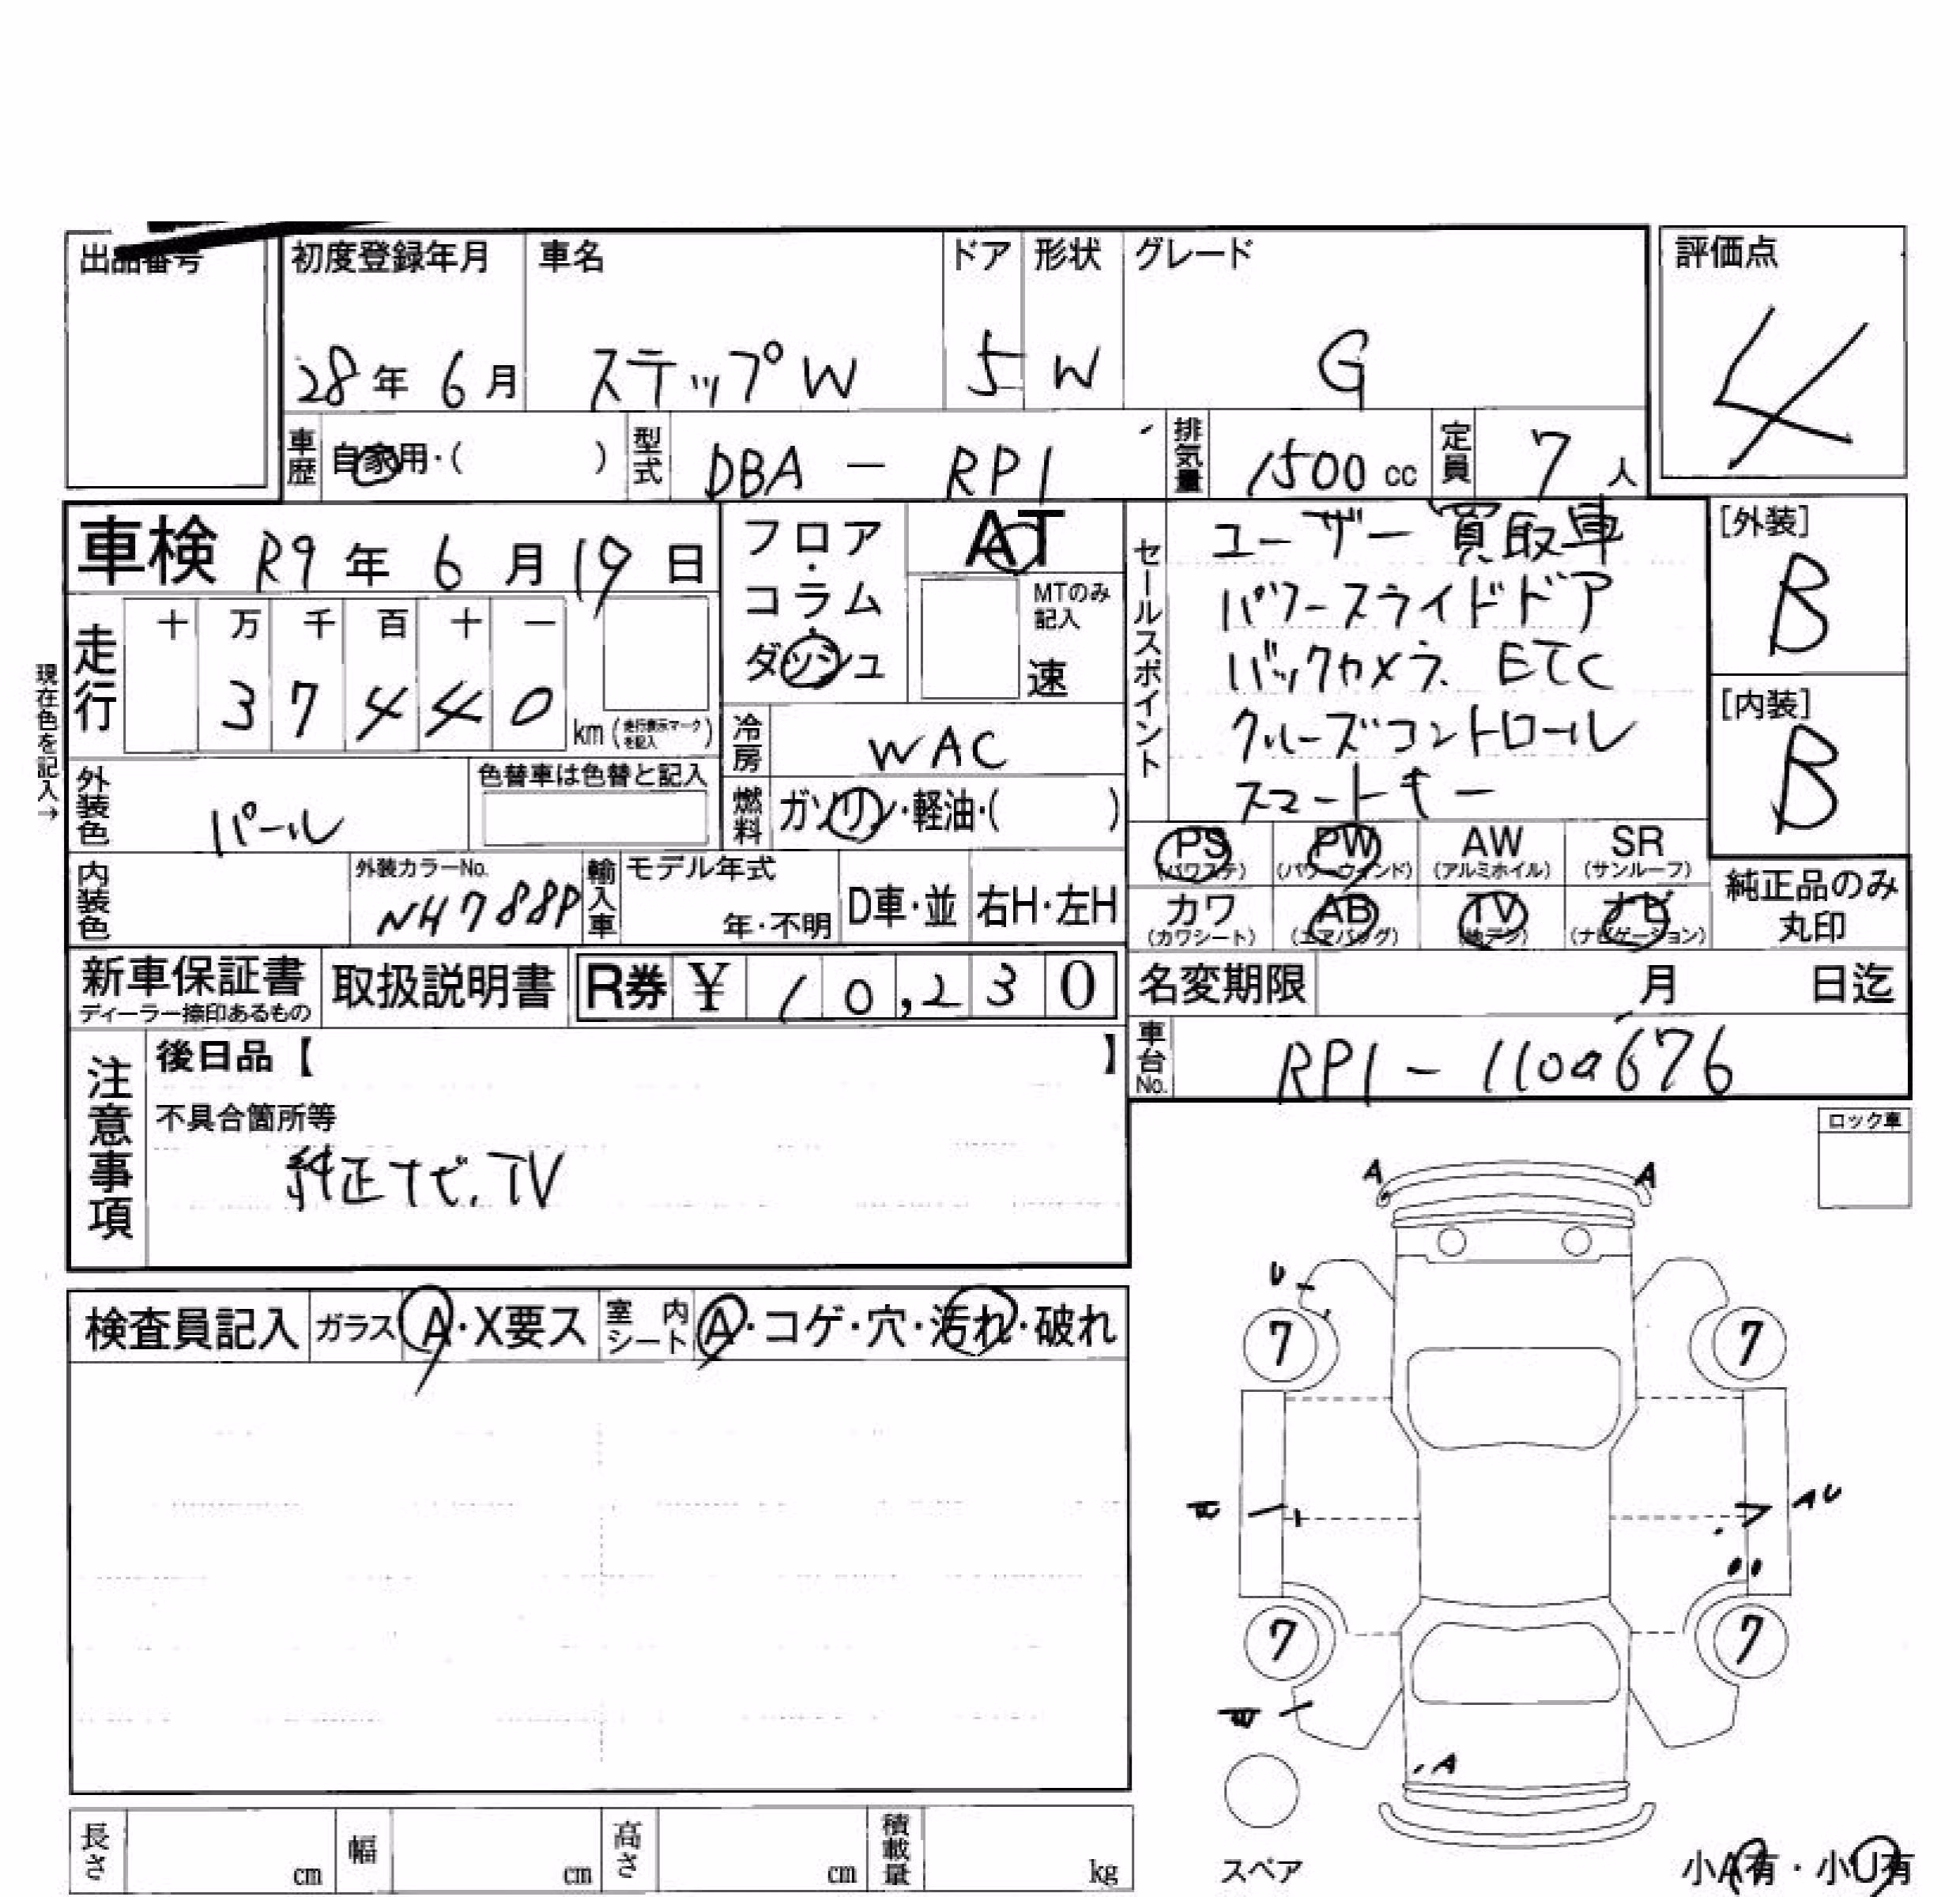 出品番号
初度登録年月 車名 ドア 形状 グレード 評価点
28年 6月 ステップW 5 W G 4
車歴 自家用・( ) 型式 DBA - RP1 排気量 1500 cc 定員 7 人
車検 R9年 6月 19日
フロア・コラム・ダッシュ AT
MTのみ記入 速
セールスポイント
ユーザー買取車
パワースライドドア
バックカメラ. ETC
クルーズコントロール
スマートキー
[外装] B
[内装] B
現在色を記入→
走行 十 万 千 百 十 一
3 7 4 4 0 km (走行表示マークを記入)
冷房 WAC
外装色 パール 色替車は色替と記入
燃料 ガソリン・軽油・( )
PS (パワステ) PW (パワーウィンド) AW (アルミホイル) SR (サンルーフ)
カワ (カワシート) AB (エアバッグ) TV (地デジ) ナビ (ナビゲーション)
純正品のみ丸印
内装色 外装カラーNo. NH788P 輸入車 モデル年式 年・不明 D車・並 右H・左H
新車保証書 ディーラー捺印あるもの 取扱説明書 R券 ¥ 10,230
名変期限 月 日迄
車台No. RP1-1100676
注意事項 後日品【 】
不具合箇所等
純正ナビ.TV
ロック車
A A
U
7 7
AU
7 7
A
検査員記入 ガラス A・X要ス 室内シート A・コゲ・穴・汚れ・破れ
長さ cm 幅 cm 高さ cm 積載量 kg
スペア
小A有・小U有